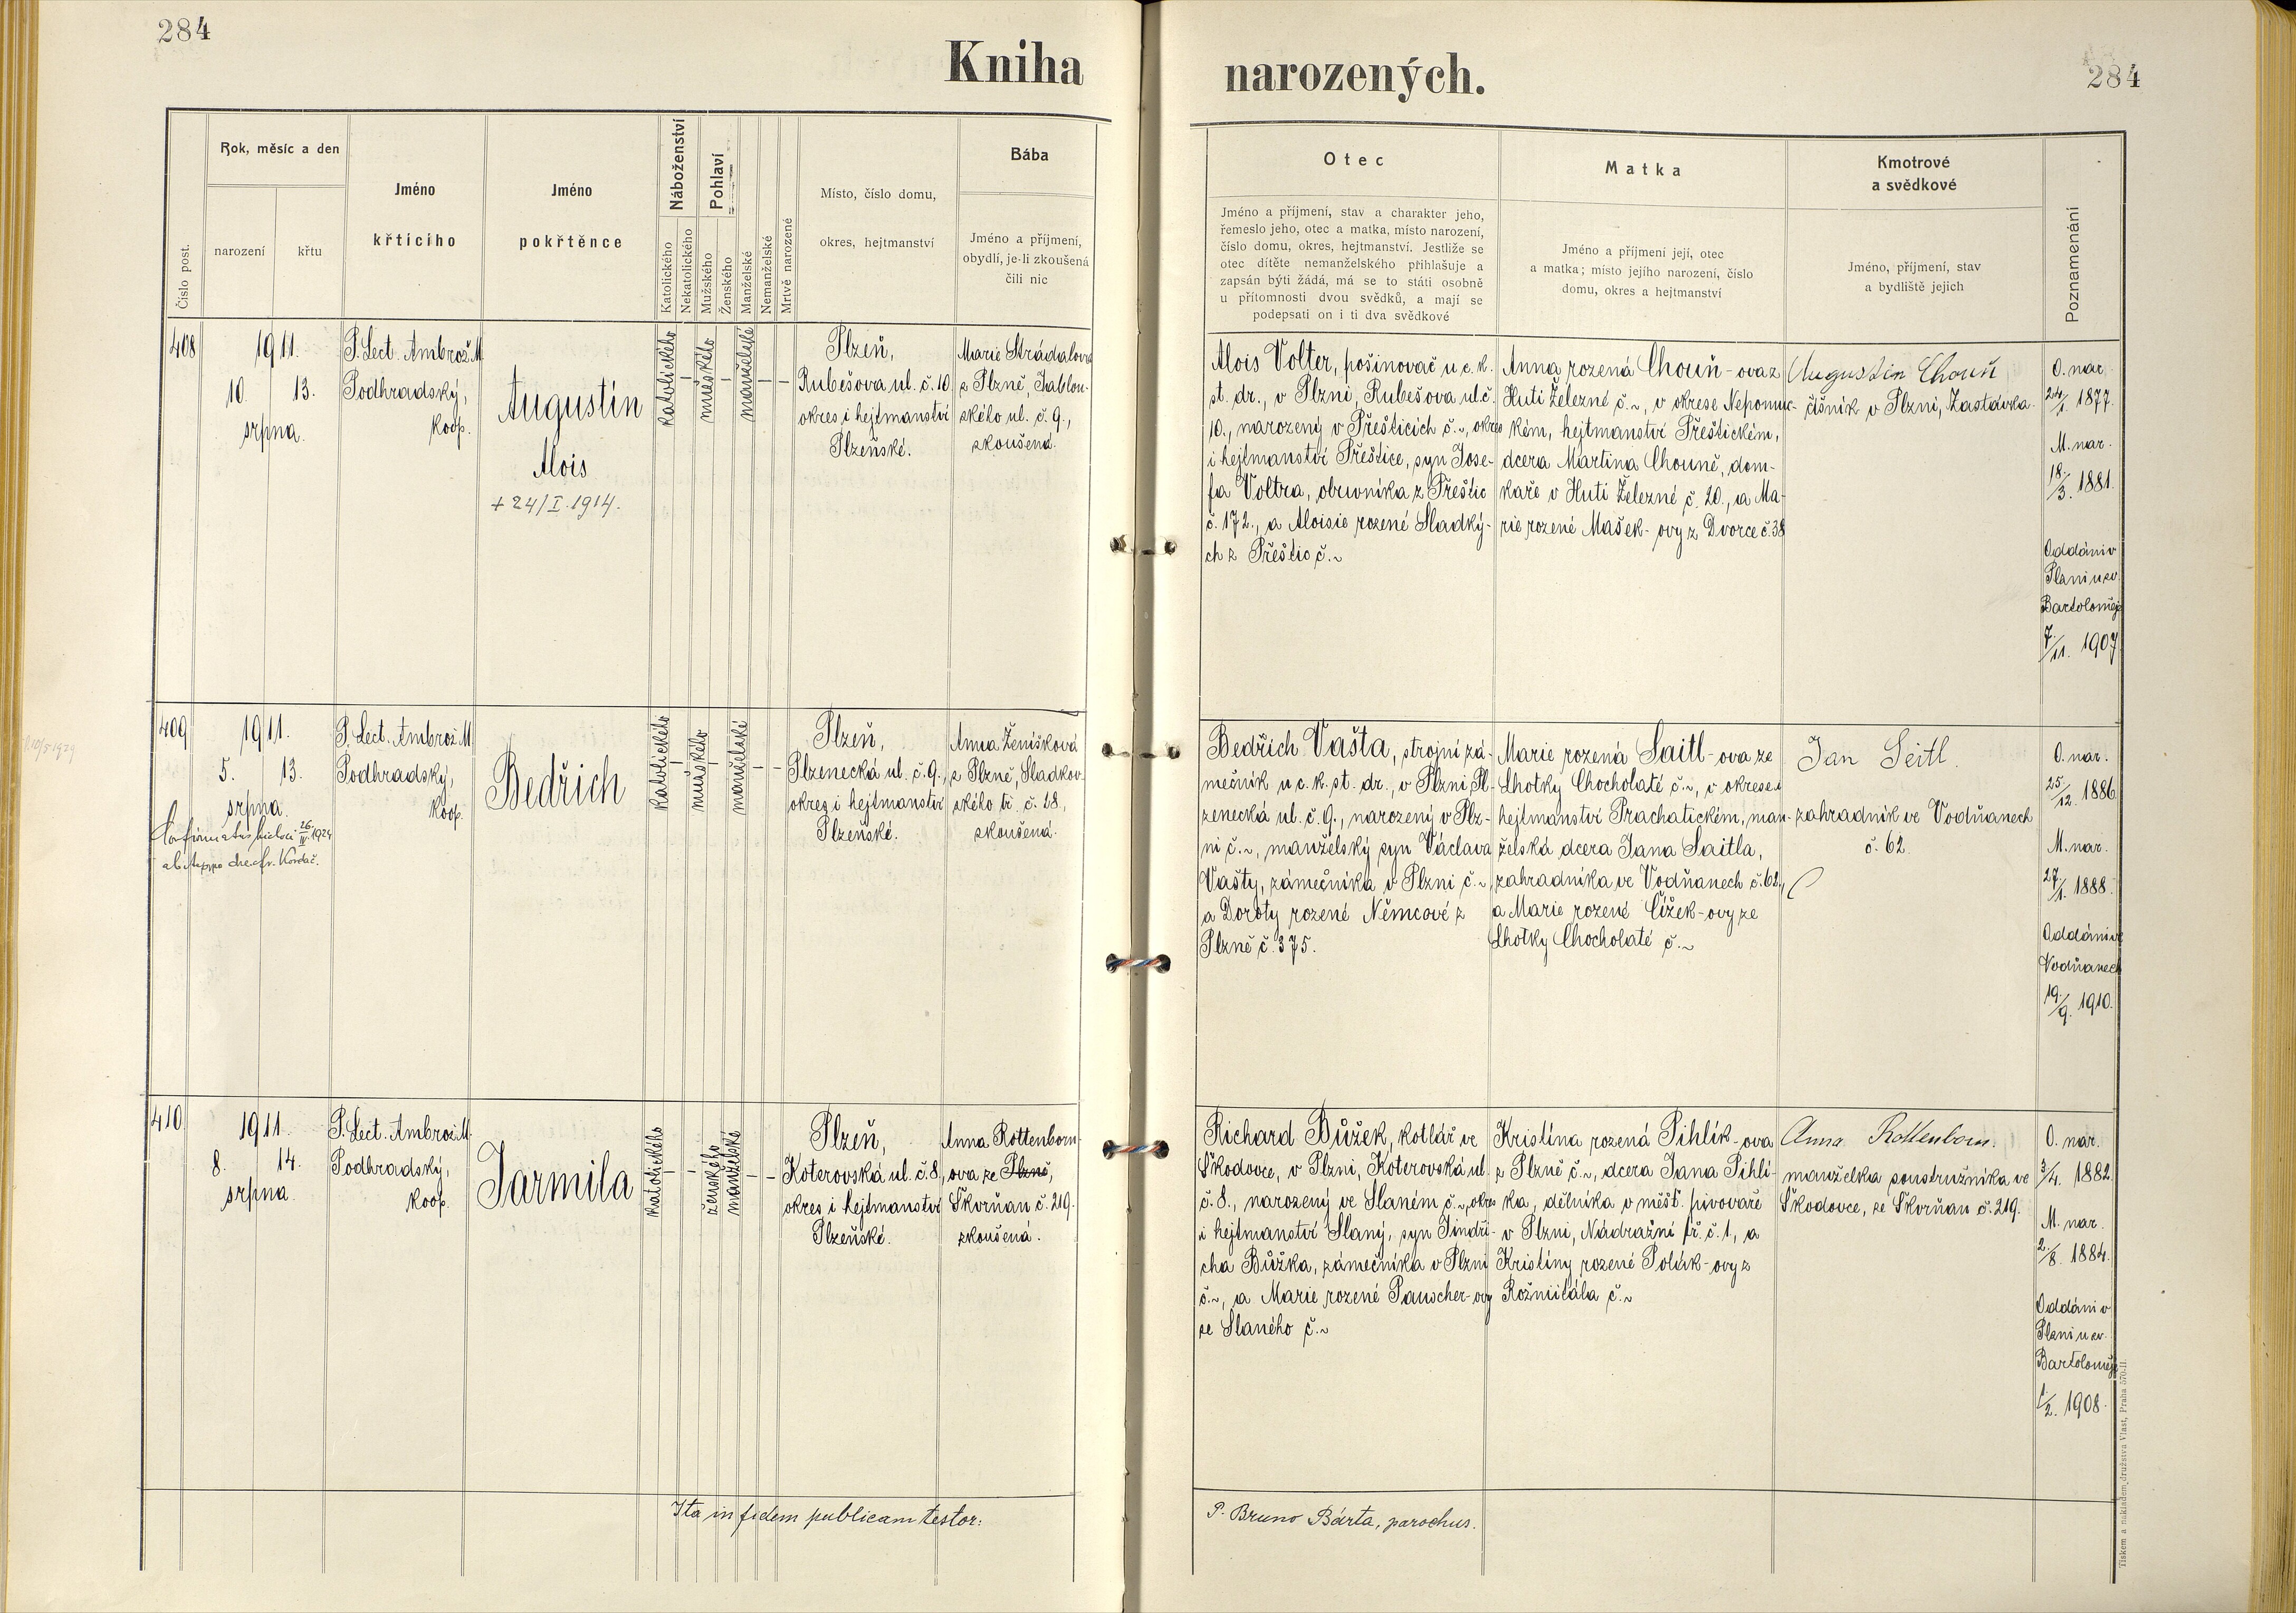 284
Kniha
narozených.
284
Číslo post.
Rok, měsíc a den
narození
křtu
Jméno
křtícího
Jméno
pokřtěnce
Náboženství
Katolického
Nekatolického
Pohlaví
Mužského
Ženského
Manželské
Nemanželské
Mrtvě narozené
Místo, číslo domu,
okres, hejtmanství
Bába
Jméno a příjmení,
obydlí, je-li zkoušená
čili nic
Otec
Jméno a příjmení, stav a charakter jeho,
řemeslo jeho, otec a matka, místo narození,
číslo domu, okres, hejtmanství. Jestliže se
otec dítěte nemanželského přihlašuje a
zapsán býti žádá, má se to státi osobně
u přítomnosti dvou svědků, a mají se
podepsati on i ti dva svědkové
Matka
Jméno a příjmení její, otec
a matka; místo jejího narození, číslo
domu, okres a hejtmanství
Kmotrové
a svědkové
Jméno, příjmení, stav
a bydliště jejich
Poznamenání
408
1911.
10. 13.
srpna.
P. Lect. Ambrož M
Podhradský,
koop.
Augustin
Alois
+ 24/I. 1914.
katolického
–
mužského
–
manželské
–
–
Plzeň,
Rubešova ul. č. 10
okres i hejtmanství
Plzeňské.
Marie Strádalova
z Plzně, Jablon-
ského ul. č. 9.,
zkoušená.
Alois Volter, pošinovač u c. k.
st. dr., v Plzni, Rubešova ul. č.
10., narozený v Přešticích č. ~, okres
i hejtmanství Přeštice, syn Jose-
fa Voltra, obuvníka z Přeštic
č. 172., a Aloisie rozené Sladký-
ch z Přeštic č. ~
Anna rozená Chouň-ova z
Huti Železné č. ~, v okrese Nepomuc-
kém, hejtmanství Přeštickém,
dcera Martina Chouně, dom-
kaře v Huti Železné č. 20., a Ma-
rie rozené Mašek-ovy z Dvorce č. 38
Augustin Chouň
číšník v Plzni, Zastávka.
O. nar.
24/1. 1877.
M. nar.
18/3. 1881.
Oddáni v
Plzni u sv.
Bartoloměje
7/11. 1907
409
1911.
5. 13.
srpna.
Confirmatus 26/IV. 1924
P. Lect. Ambrož M
Podhradský,
koop.
Bedřich
katolického
–
mužského
–
manželské
–
–
Plzeň,
Plzenecká ul. č. 9.,
okres i hejtmanství
Plzeňské.
Anna Ženíšková
z Plzně, Sladkov-
ského tř. č. 18,
zkoušená.
Bedřich Vašta, strojní zá-
mečník u c. k. st. dr., v Plzni, Pl-
zenecká ul. č. 9., narozený v Plz-
ni č. ~, manželský syn Václava
Vašty, zámečníka v Plzni č. ~,
a Doroty rozené Němcové z
Plzně č. 375.
Marie rozená Saitl-ova ze
Lhotky Chocholaté č. ~, v okrese i
hejtmanství Prachatickém, man-
želská dcera Jana Saitla,
zahradníka ve Vodňanech č. 62.,
a Marie rozené Čížek-ovy ze
Lhotky Chocholaté č. ~
Jan Seitl.
zahradník ve Vodňanech
č. 62.
O. nar.
25/12. 1886
M. nar.
27/1. 1888.
Oddáni ve
Vodňanech
19/9. 1910.
410
1911.
8. 14.
srpna
P. Lect. Ambrož M.
Podhradský,
koop.
Jarmila
katolického
–
–
ženského
manželské
–
–
Plzeň,
Koterovská ul. č. 8.,
okres i hejtmanství
Plzeňské.
Anna Rottenborn-
ova ze Plzně,
Škvrňan č. 219.
zkoušená.
Richard Bůžek, kotlář ve
Škodovce, v Plzni, Koterovská ul.
č. 8., narozený ve Slaném č. ~, okres
i hejtmanství Slaný, syn Jindři-
cha Bůžka, zámečníka v Plzni
č. ~, a Marie rozené Pauscher-ovy
ze Slaného č. ~
Kristina rozená Pihlík-ova
z Plzně č. ~, dcera Jana Pihlí-
ka, dělníka v měšť. pivovaře
v Plzni, Nádražní tř. č. 1, a
Kristiny rozené Polák-ovy z
Rožmitála č. ~
Anna Rottenborn.
manželka soustružníka ve
Škodovce, ze Škvrňan č. 219.
O. nar.
3/4. 1882.
M. nar.
2/8. 1884.
Oddáni v
Plzni u sv.
Bartoloměje
1/2. 1908.
Ita in fidem publicam testor:
P. Bruno Bárta, parochus.
Tiskem a nákladem družstva Vlast, Praha 570-II.